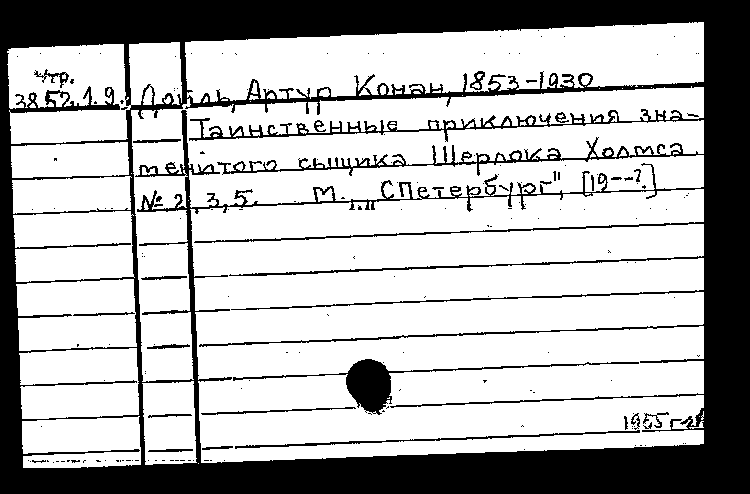 ч/тр.
3852.1.9. Дойль, Артур Конан, 1853-1930
Таинственные приключения зна-
менитого сыщика Шерлока Холмса.
№ 2, 3, 5. М., „СПетербург", [19--?]
1955 г.